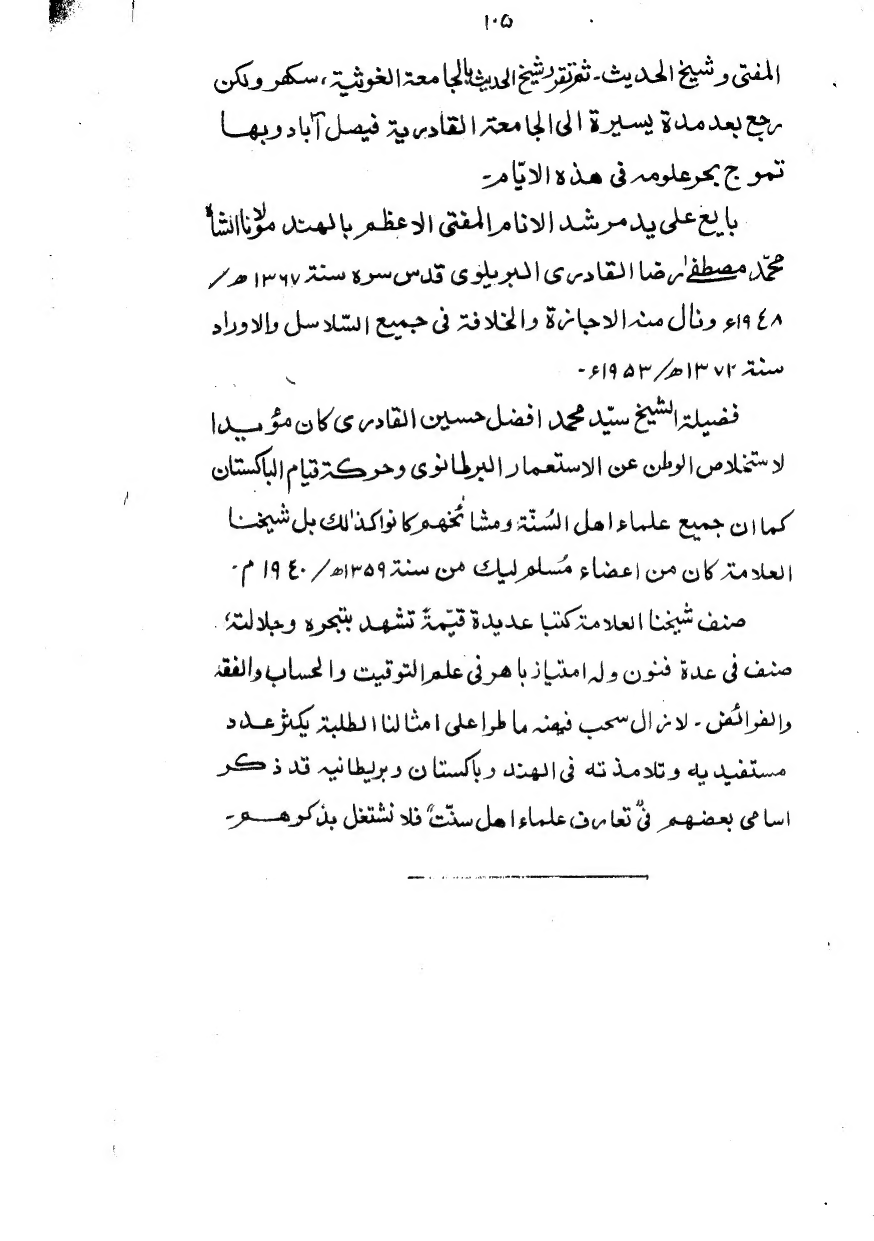 ١٠٥
المفتى وشيخ الحديث۔ ثم تقرر شيخ الحديث بالجامعة الغوثية، سكهر ولكن
رجع بعد مدة يسيرة الى الجامعة القادرية فيصل آباد وبها
تموج بحر علومه فى هذه الايّام۔
بايع على يد مرشد الانام المفتى الاعظم بالهند مولانا الشاه
محمّد مصطفىٰ رضا القادرى البريلوى قدس سره سنة ١٣٦٧ھ/
١٩٤٨ء ونال منه الاجازة والخلافة فى جميع السّلاسل والاوراد
سنة ١٣٧٢ھ/١٩٥٣ء۔
فضيلة الشيخ سيّد محمد افضل حسين القادرى كان مؤيدا
لاستخلاص الوطن عن الاستعمار البرطانوى وحركة قيام الباكستان
كما ان جميع علماء اهل السُنّة ومشائخهم كانوا كذالك بل شيخنا
العلامة كان من اعضاء مُسلم ليك من سنة ١٣٥٩ھ/١٩٤٠م۔
صنف شيخنا العلامة كتبا عديدة قيّمةً تشهد بتبحره وجلالته،
صنف فى عدة فنون وله امتياز باهر فى علم التوقيت والحساب والفقه
والفرائض۔ لازال سحب فيضه ماطرا على امثالنا الطلبة يكثر عدد
مستفيديه وتلامذته فى الهند وباكستان وبريطانيه قد ذكر
اسامى بعضهم فى "تعارف علماء اهل سنّت" فلا نشتغل بذكرهم۔